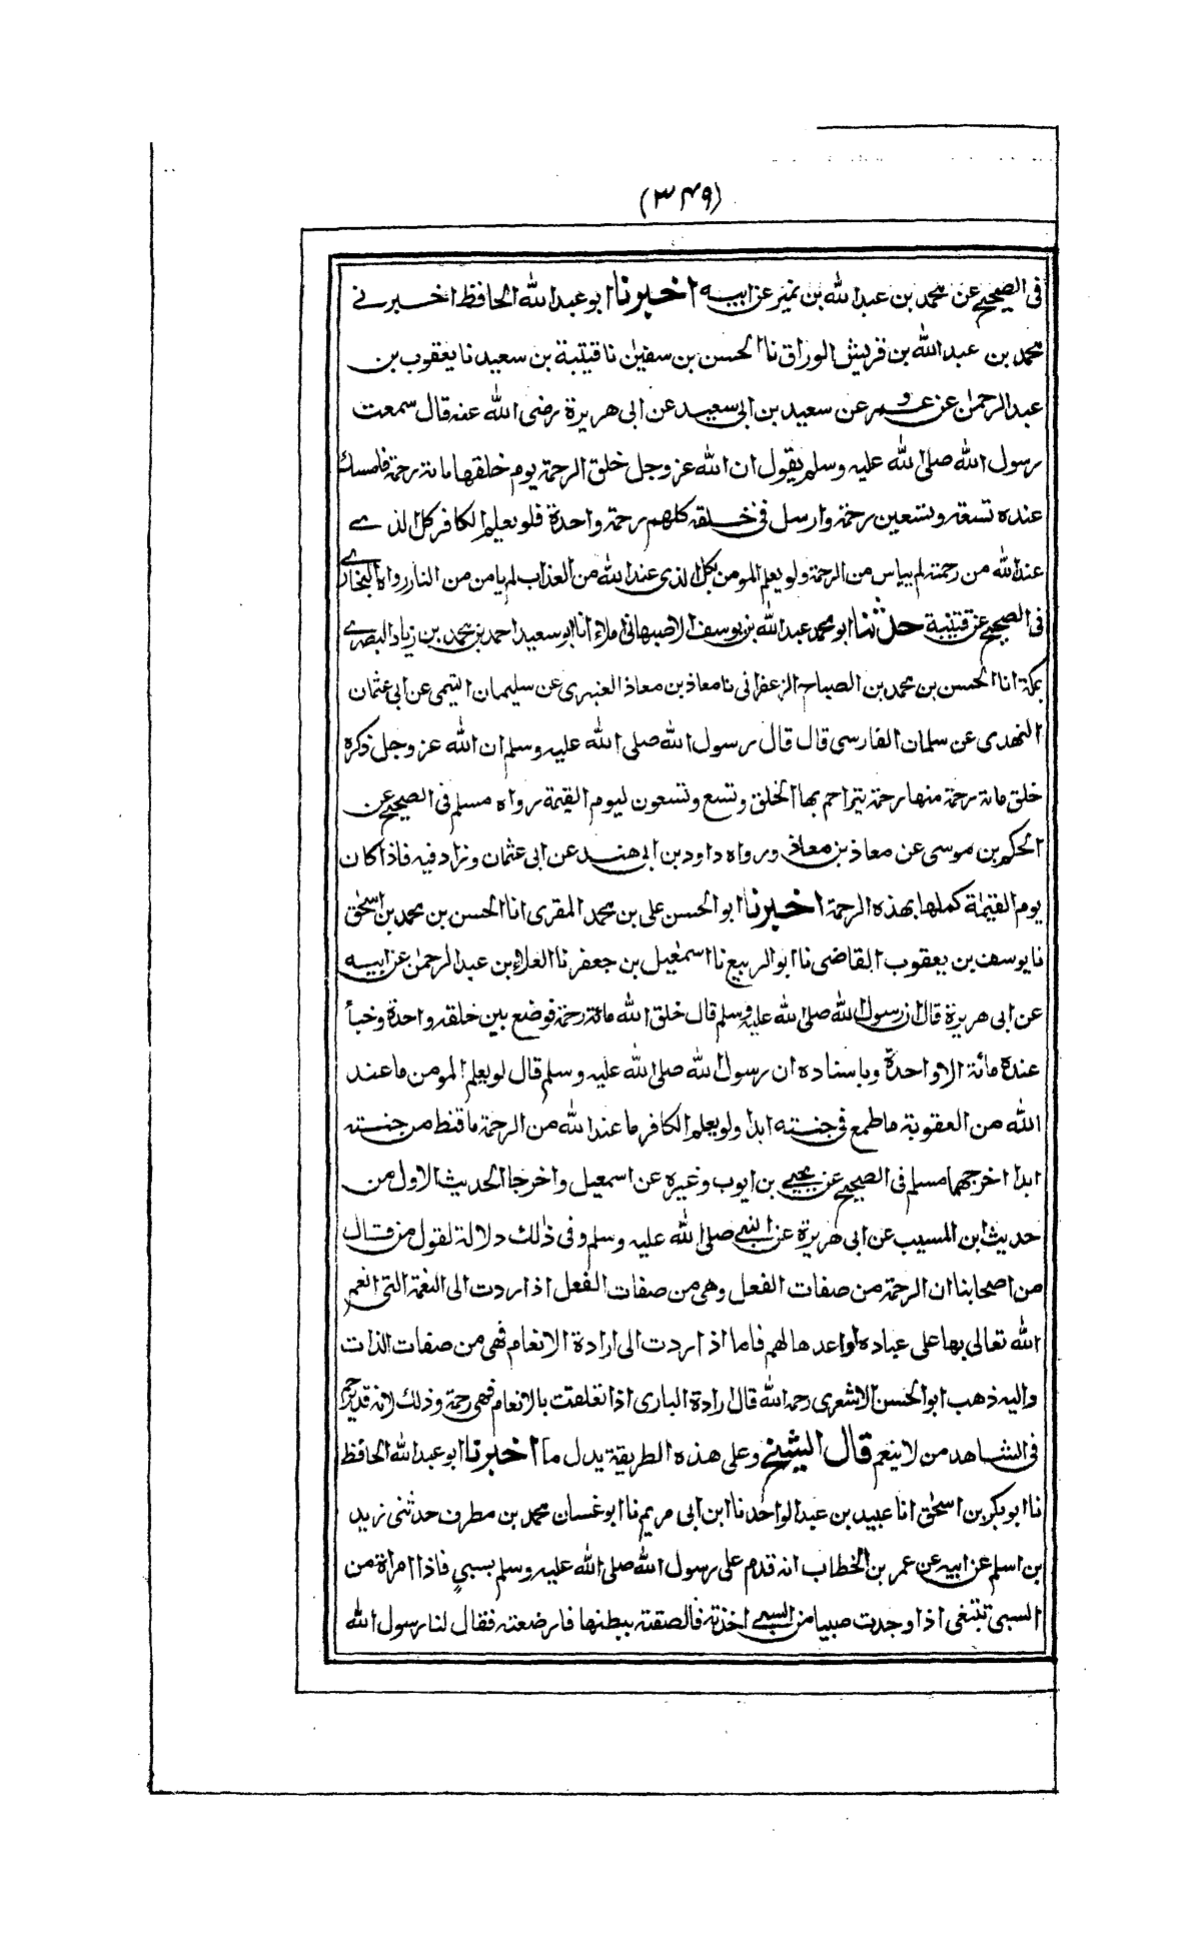 (٣٤٩)
فى الصحيح عن محمد بن عبد الله بن نمير عن ابيه اخبرنا ابو عبد الله الحافظ اخبرنے
محمد بن عبد الله بن قريش الوراق نا الحسن بن سفيٰن نا قتيبة بن سعيد نا يعقوب بن
عبد الرحمٰن عن عمرو عن سعيد بن ابى سعيد عن ابى هريرة رضى الله عنه قال سمعت
رسول الله صلى الله عليه وسلم يقول ان الله عز وجل خلق الرحمة يوم خلقها مائة رحمة فامسك
عنده تسعة وتسعين رحمة وارسل فى خلقه كلهم رحمة واحدة فلو يعلم الكافر كل الذے
عند الله من رحمته لم ييأس من الرحمة ولو يعلم المومن بكل الذى عند الله من العذاب لم يامن من النار رواه البخارے
فى الصحيح عن قتيبة حدثنا ابو محمد عبد الله بن يوسف الاصبهانى املاء انا ابو سعيد احمد بن محمد بن زياد البصرے
بمكة انا الحسن بن محمد بن الصباح الزعفرانى نا معاذ بن معاذ العنبرى عن سليمان التيمى عن ابى عثمان
النهدى عن سلمان الفارسى قال قال رسول الله صلى الله عليه وسلم ان الله عز وجل ذكره
خلق مائة رحمة منها رحمة يتراحم بها الخلق وتسع وتسعون ليوم القيمة رواه مسلم فى الصحيح عن
الحكم بن موسى عن معاذ بن معاذ ورواه داود بن ابى هند عن ابى عثمان وزاد فيه فاذا كان
يوم القيٰمة كملها بهذه الرحمة اخبرنا ابو الحسن على بن محمد المقرى انا الحسن بن محمد بن اسحٰق
نا يوسف بن يعقوب القاضى نا ابو الربيع نا اسمٰعيل بن جعفر نا العلاء بن عبد الرحمٰن عن ابيه
عن ابى هريرة قال ان رسول الله صلى الله عليه وسلم قال خلق الله مائة رحمة فوضع بين خلقه واحدة وخبأ
عنده مائة الا واحدة وباسناده ان رسول الله صلى الله عليه وسلم قال لو يعلم المومن ما عند
الله من العقوبة ما طمع فى جنته ابدا ولو يعلم الكافر ما عند الله من الرحمة ما قنط من جنته
ابدا اخرجهما مسلم فى الصحيح عن يحيے بن ايوب وغيره عن اسمعيل واخرجا الحديث الاول من
حديث ابن المسيب عن ابى هريرة عن النبى صلى الله عليه وسلم وفى ذٰلك دلالة لقول من قال
من اصحابنا ان الرحمة من صفات الفعل وهى من صفات الفعل اذا ردت الى النعمة التى انعم
الله تعالى بها على عباده او اعدها لهم فاما اذا ردت الى ارادة الانعام فهى من صفات الذات
واليه ذهب ابو الحسن الاشعرى رحمه الله قال ارادة البارى اذا تعلقت بالانعام فهى رحمة وذلك لانه قد يرحم
فى الشاهد من لا ينعم قال الشيخ وعلى هذه الطريقة يدل ما اخبرنا ابو عبد الله الحافظ
نا ابو بكر بن اسحٰق انا عبيد بن عبد الواحد نا ابن ابى مريم نا ابو غسان محمد بن مطرف حدثنى زيد
بن اسلم عن ابيه عن عمر بن الخطاب انه قدم على رسول الله صلى الله عليه وسلم بسبىٍ فاذا امراة من
السبى تبتغى اذا وجدت صبيا من السبے اخذته فالصقته ببطنها فارضعته فقال لنا رسول الله